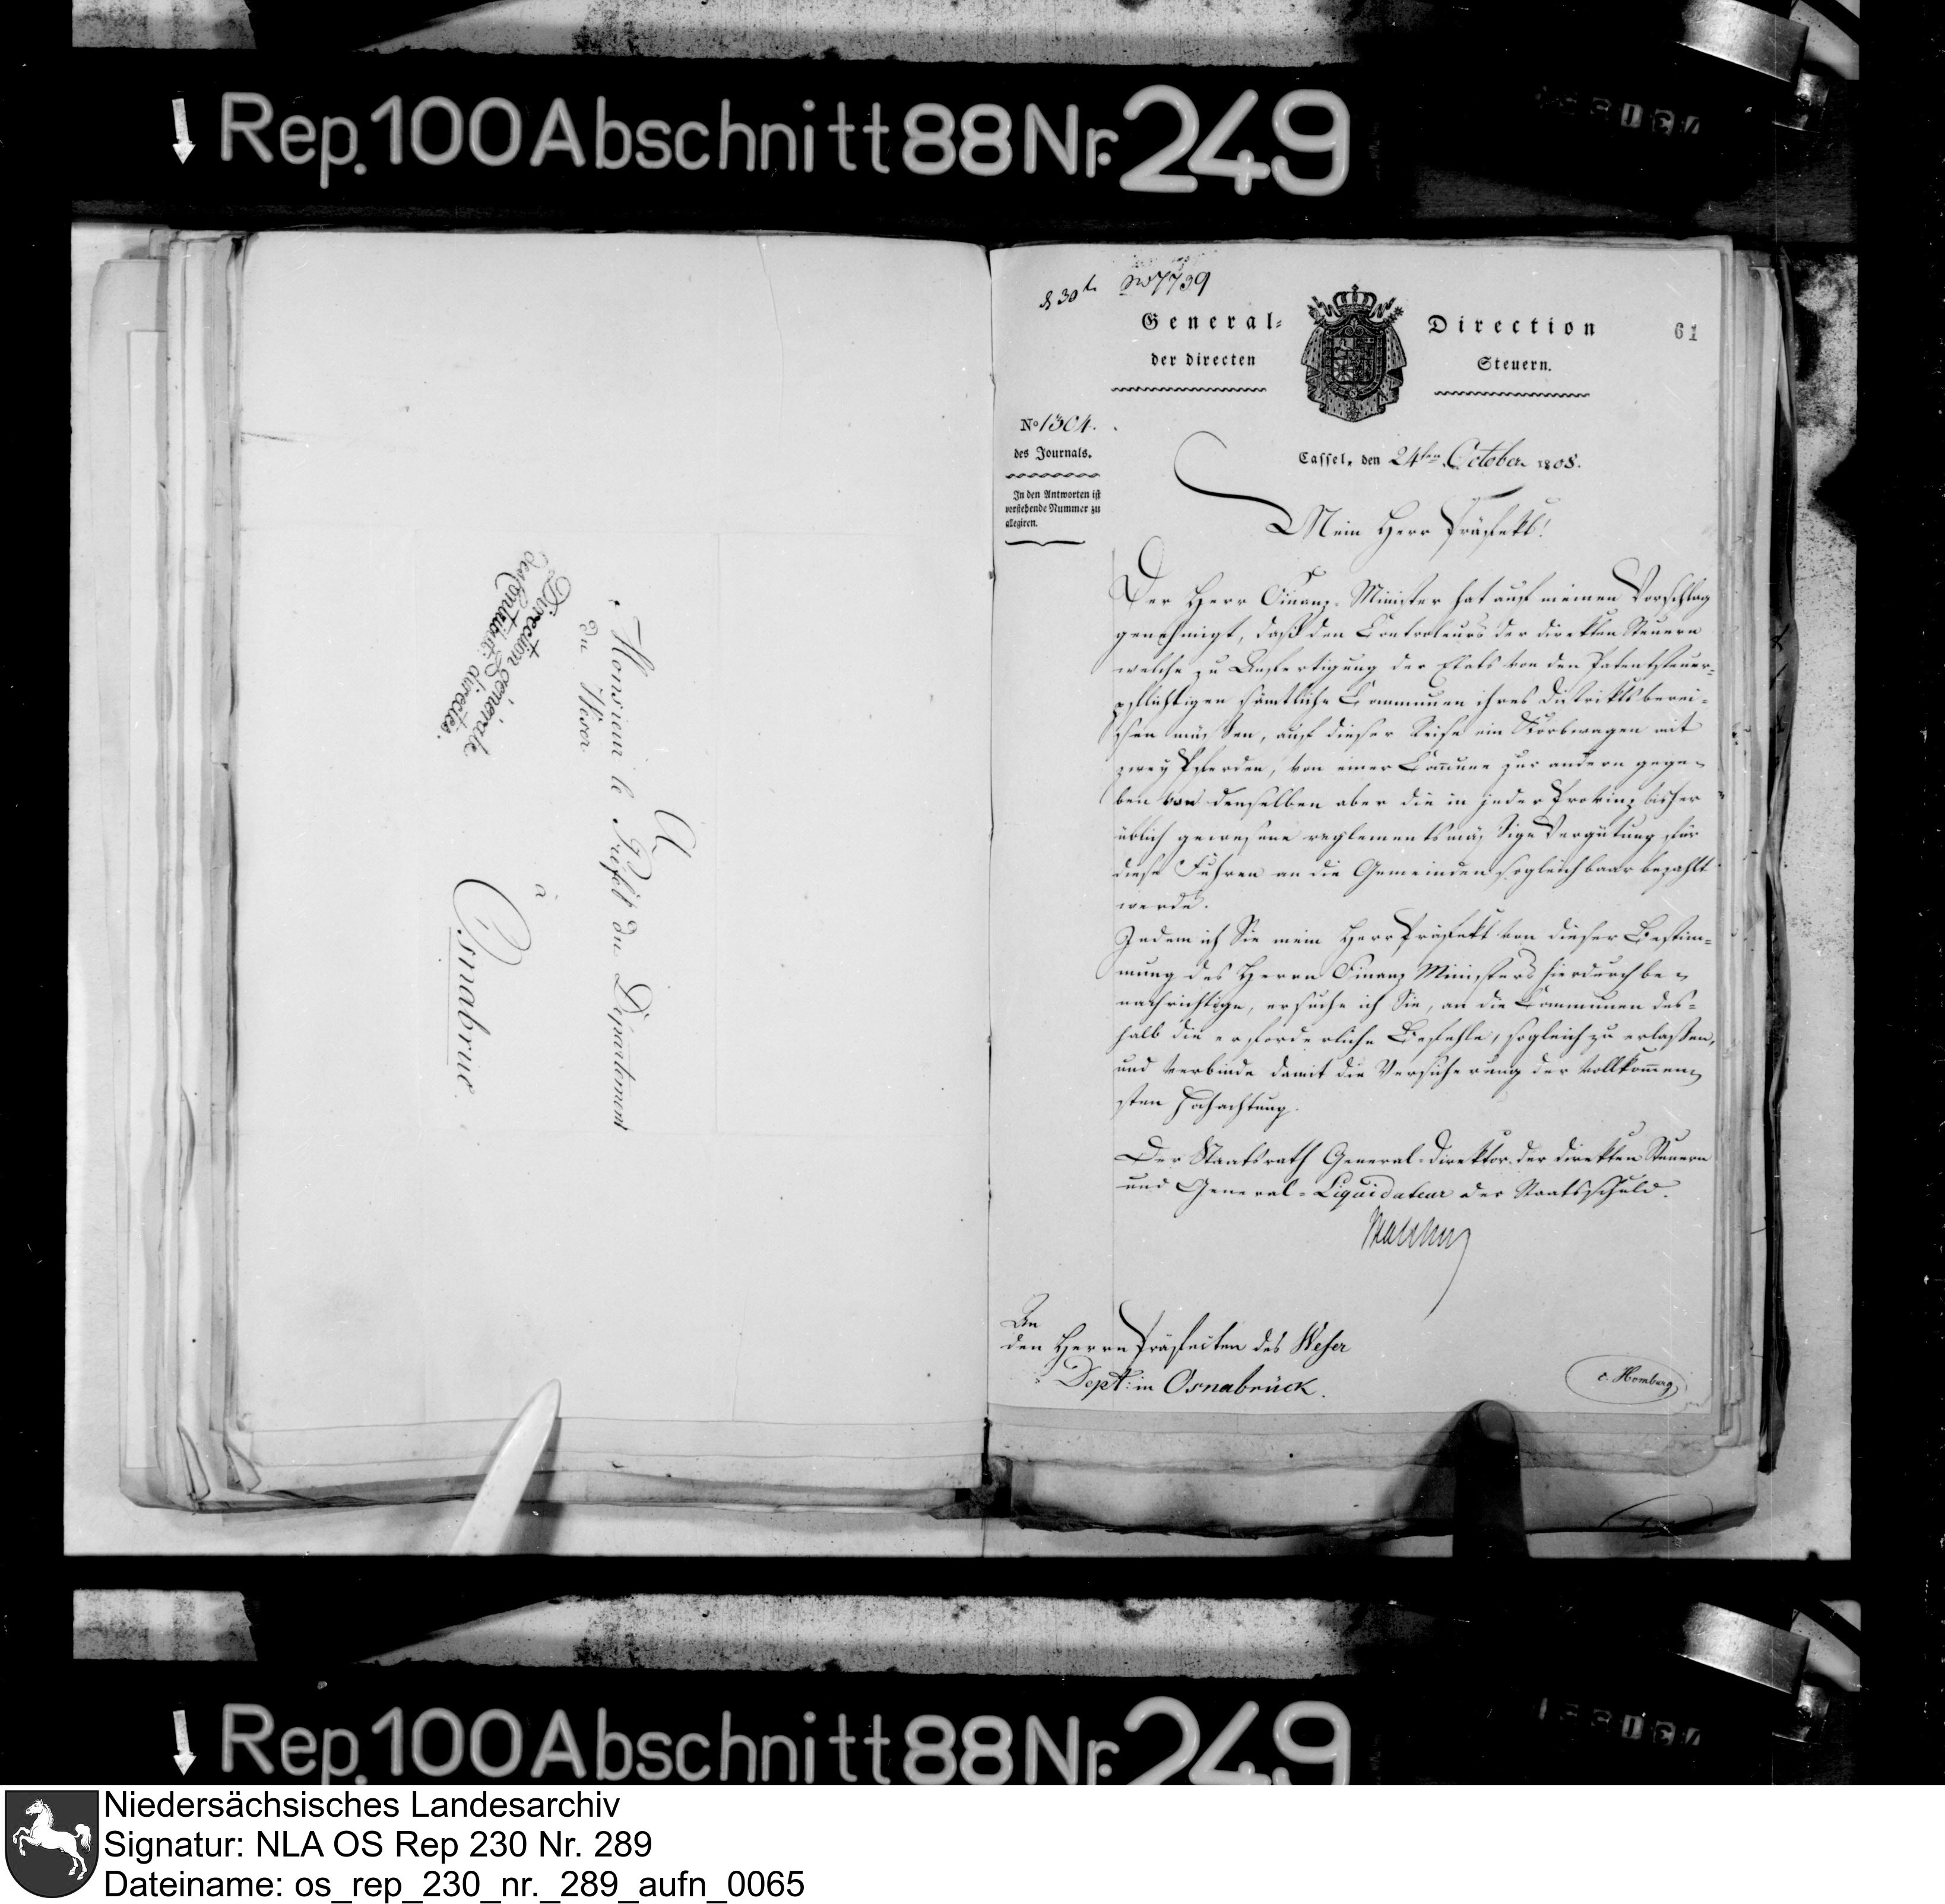 Rep. 100 Abschnitt 88 Nr. 249
Direction générale
des Contribut: directes.
A
Monsieur le Préfêt du Département
du Weser
à
Osnabruc
№ 7739
General-Direction
der directen Steuern.
61
No 1304.
des Journals.
In den Antworten ist
vorstehende Nummer zu
allegiren.
Cassel, den 24ten October 1808.
Mein Herr Präfekt!
Der Herr Finanz-Minister hat auf meinen Vorschlag
genehmigt, daß den Controleurs der direkten Steuern
welche zu Ausfertigung der Etats von den Patentsteuer-
pflichtigen sämtliche Communen ihres Distrikts berei-
sen müssen, auf dieser Reise ein Korbwagen mit
zwey Pferden, von einer Com̄une zur andern gege-
ben von denselben aber die in jeder Provinz bisher
üblich gewesene reglementsmäßige Vergütung für
diese Fuhren an die Gemeinden sogleich baar bezahlt
werde.
Indem ich Sie mein Herr Präfekt von dieser Bestim-
mung des Herrn Finanz Ministers hierdurch be-
nachrichtige, ersuche ich Sie, an die Communen des-
halb die erforderliche Befehle, sogleich zu erlassen,
und verbinde damit die Versicherung der vollkom̄en-
sten Hochachtung.
Der Staatsrath General-Direktor der direkten Steuern
und General-Liquidateur der Staatsschuld.
Malchus
An
den Herrn Präfecten des Weser
Dept: in Osnabrück.
c. Homburg
Rep. 100 Abschnitt 88 Nr. 249
Niedersächsisches Landesarchiv
Signatur: NLA OS Rep 230 Nr. 289
Dateiname: os_rep_230_nr._289_aufn_0065